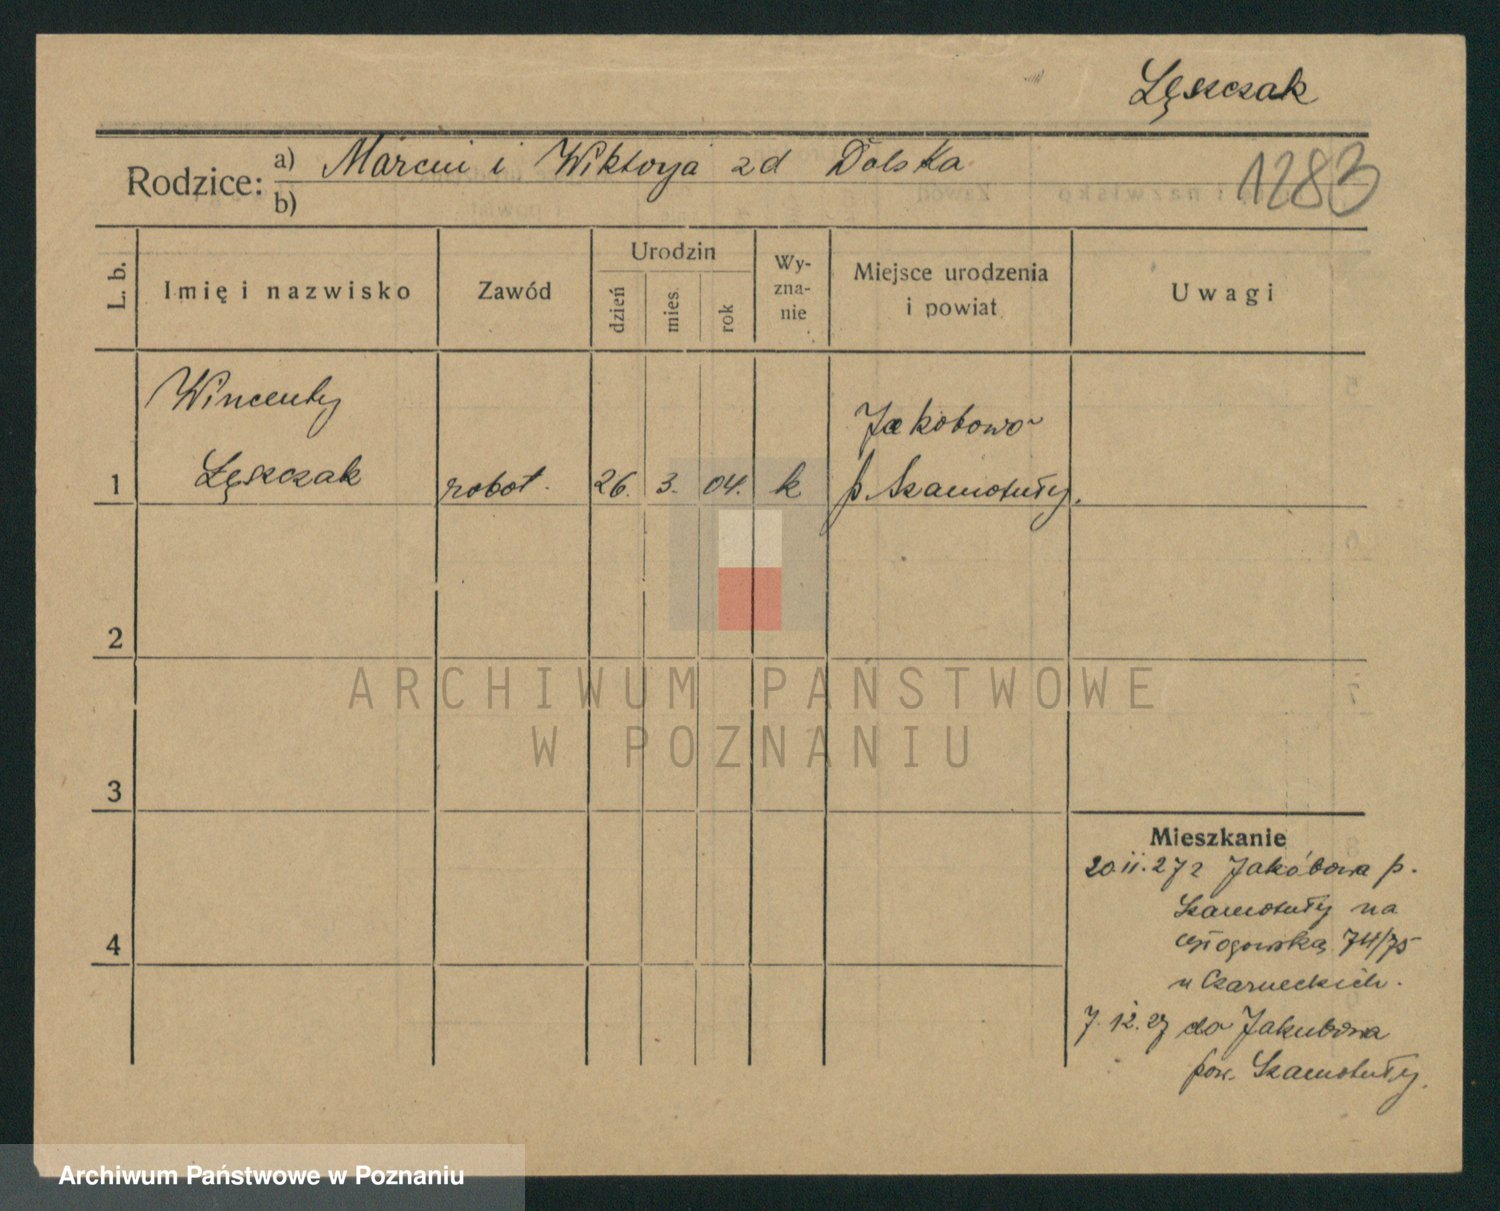 Lęszczak
Rodzice: a) Marcin i Wiktorja zd Dolska
b)
1283
L. b.
Imię i nazwisko
Zawód
Urodzin
dzień
mies.
rok
Wy-
zna-
nie
Miejsce urodzenia
i powiat
Uwagi
Wincenty
Jakobowo
1 Lęszczak robot. 26. 3. 04. k p. Szamotuły.
2
3
4
ARCHIWUM PAŃSTWOWE
W POZNANIU
Mieszkanie
20.11.27 z Jakóbowa p.
Szamotuły na
74/75
u Czarneckich.
7.12.27 do Jakubowa
pow. Szamotuły.
Archiwum Państwowe w Poznaniu